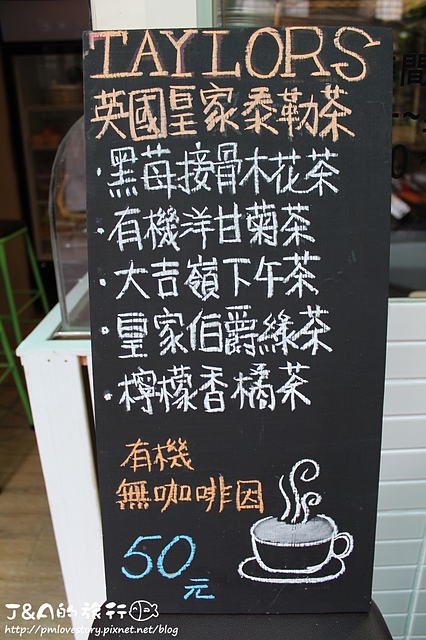 TAYLORS
英國皇家泰勒茶
·黑莓接骨木花茶
·有機洋甘菊茶
·大吉嶺下午茶
·皇家伯爵綠茶
·檸檬香橘茶
有機
無咖啡因
50元
J&A的旅行
http://pmlovestory.pixnet.net/blog